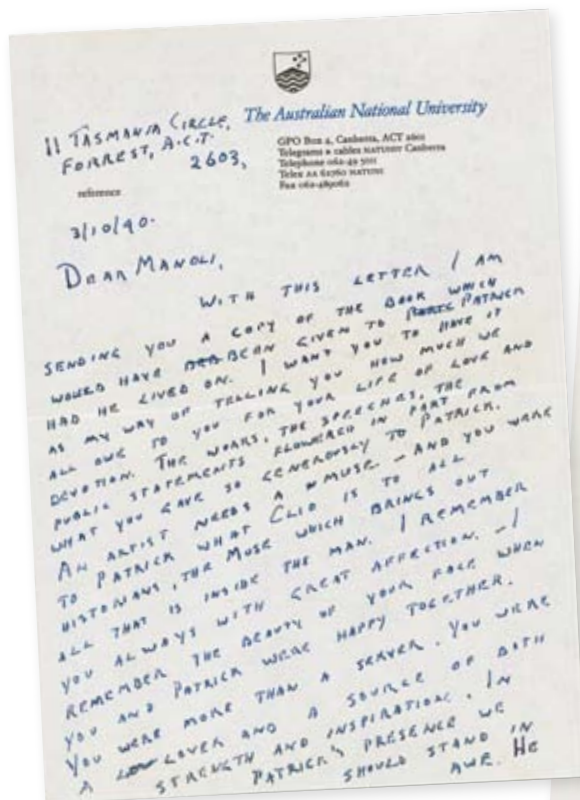 The Australian National University
11 TASMANIA CIRCLE,
FORREST, A.C.T.
2603,
GPO Box 4, Canberra, ACT 2601
Telegrams & cables NATUNIV Canberra
Telephone 062-49 5111
Telex AA 62760 NATUNI
Fax 062-489062
reference
3/10/90.
DEAR MANOLI,
WITH THIS LETTER I AM
SENDING YOU A COPY OF THE BOOK WHICH
WOULD HAVE BEEN GIVEN TO PATRICK
HAD HE LIVED ON. I WANT YOU TO HAVE IT
AS MY WAY OF TELLING YOU HOW MUCH WE
ALL OWE TO YOU FOR YOUR LIFE OF LOVE AND
DEVOTION. THE WORKS, THE SPEECHES, THE
PUBLIC STATEMENTS FLOWERED IN PART FROM
WHAT YOU GAVE SO GENEROUSLY TO PATRICK.
AN ARTIST NEEDS A MUSE – AND YOU WERE
TO PATRICK WHAT CLIO IS TO ALL
HISTORIANS, THE MUSE WHICH BRINGS OUT
ALL THAT IS INSIDE THE MAN. I REMEMBER
YOU ALWAYS WITH GREAT AFFECTION. – I
REMEMBER THE BEAUTY OF YOUR FACE WHEN
YOU AND PATRICK WERE HAPPY TOGETHER.
YOU WERE MORE THAN A SERVER. YOU WERE
A LOVER AND A SOURCE OF BOTH
STRENGTH AND INSPIRATION. IN
PATRICK'S PRESENCE WE
SHOULD STAND IN
AWE. HE